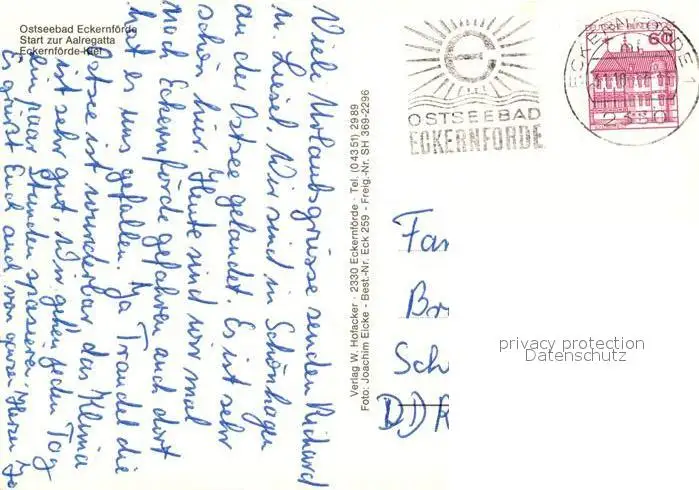 Ostseebad Eckernförde
Start zur Aalregatta
Eckernförde-Kiel
Viele Urlaubsgrüsse senden Richard
u. Liesel. Wir sind in Schönhagen
an der Ostsee gelandet. Es ist sehr
schön hier. Heute sind wir mal
nach Eckernförde gefahren auch dort
hat es uns gefallen. Ja Traudel die
Ostsee ist wunderbar das Klima
ist sehr gut, wir gehen jeden Tag
ein paar Stunden spazieren.
Es grüßt Euch auch von ganzen Herzen
Verlag W. Hofacker · 2330 Eckernförde · Tel. (04351) 2989
Foto: Joachim Eicke - Best.-Nr. Eck 259 - Freig.-Nr. SH 369-2296
OSTSEEBAD
ECKERNFÖRDE
DEUTSCHE BUNDESPOST
60
ECKERNFÖRDE 1
2330
Fam
Br
Sch
DDR
privacy protection
Datenschutz